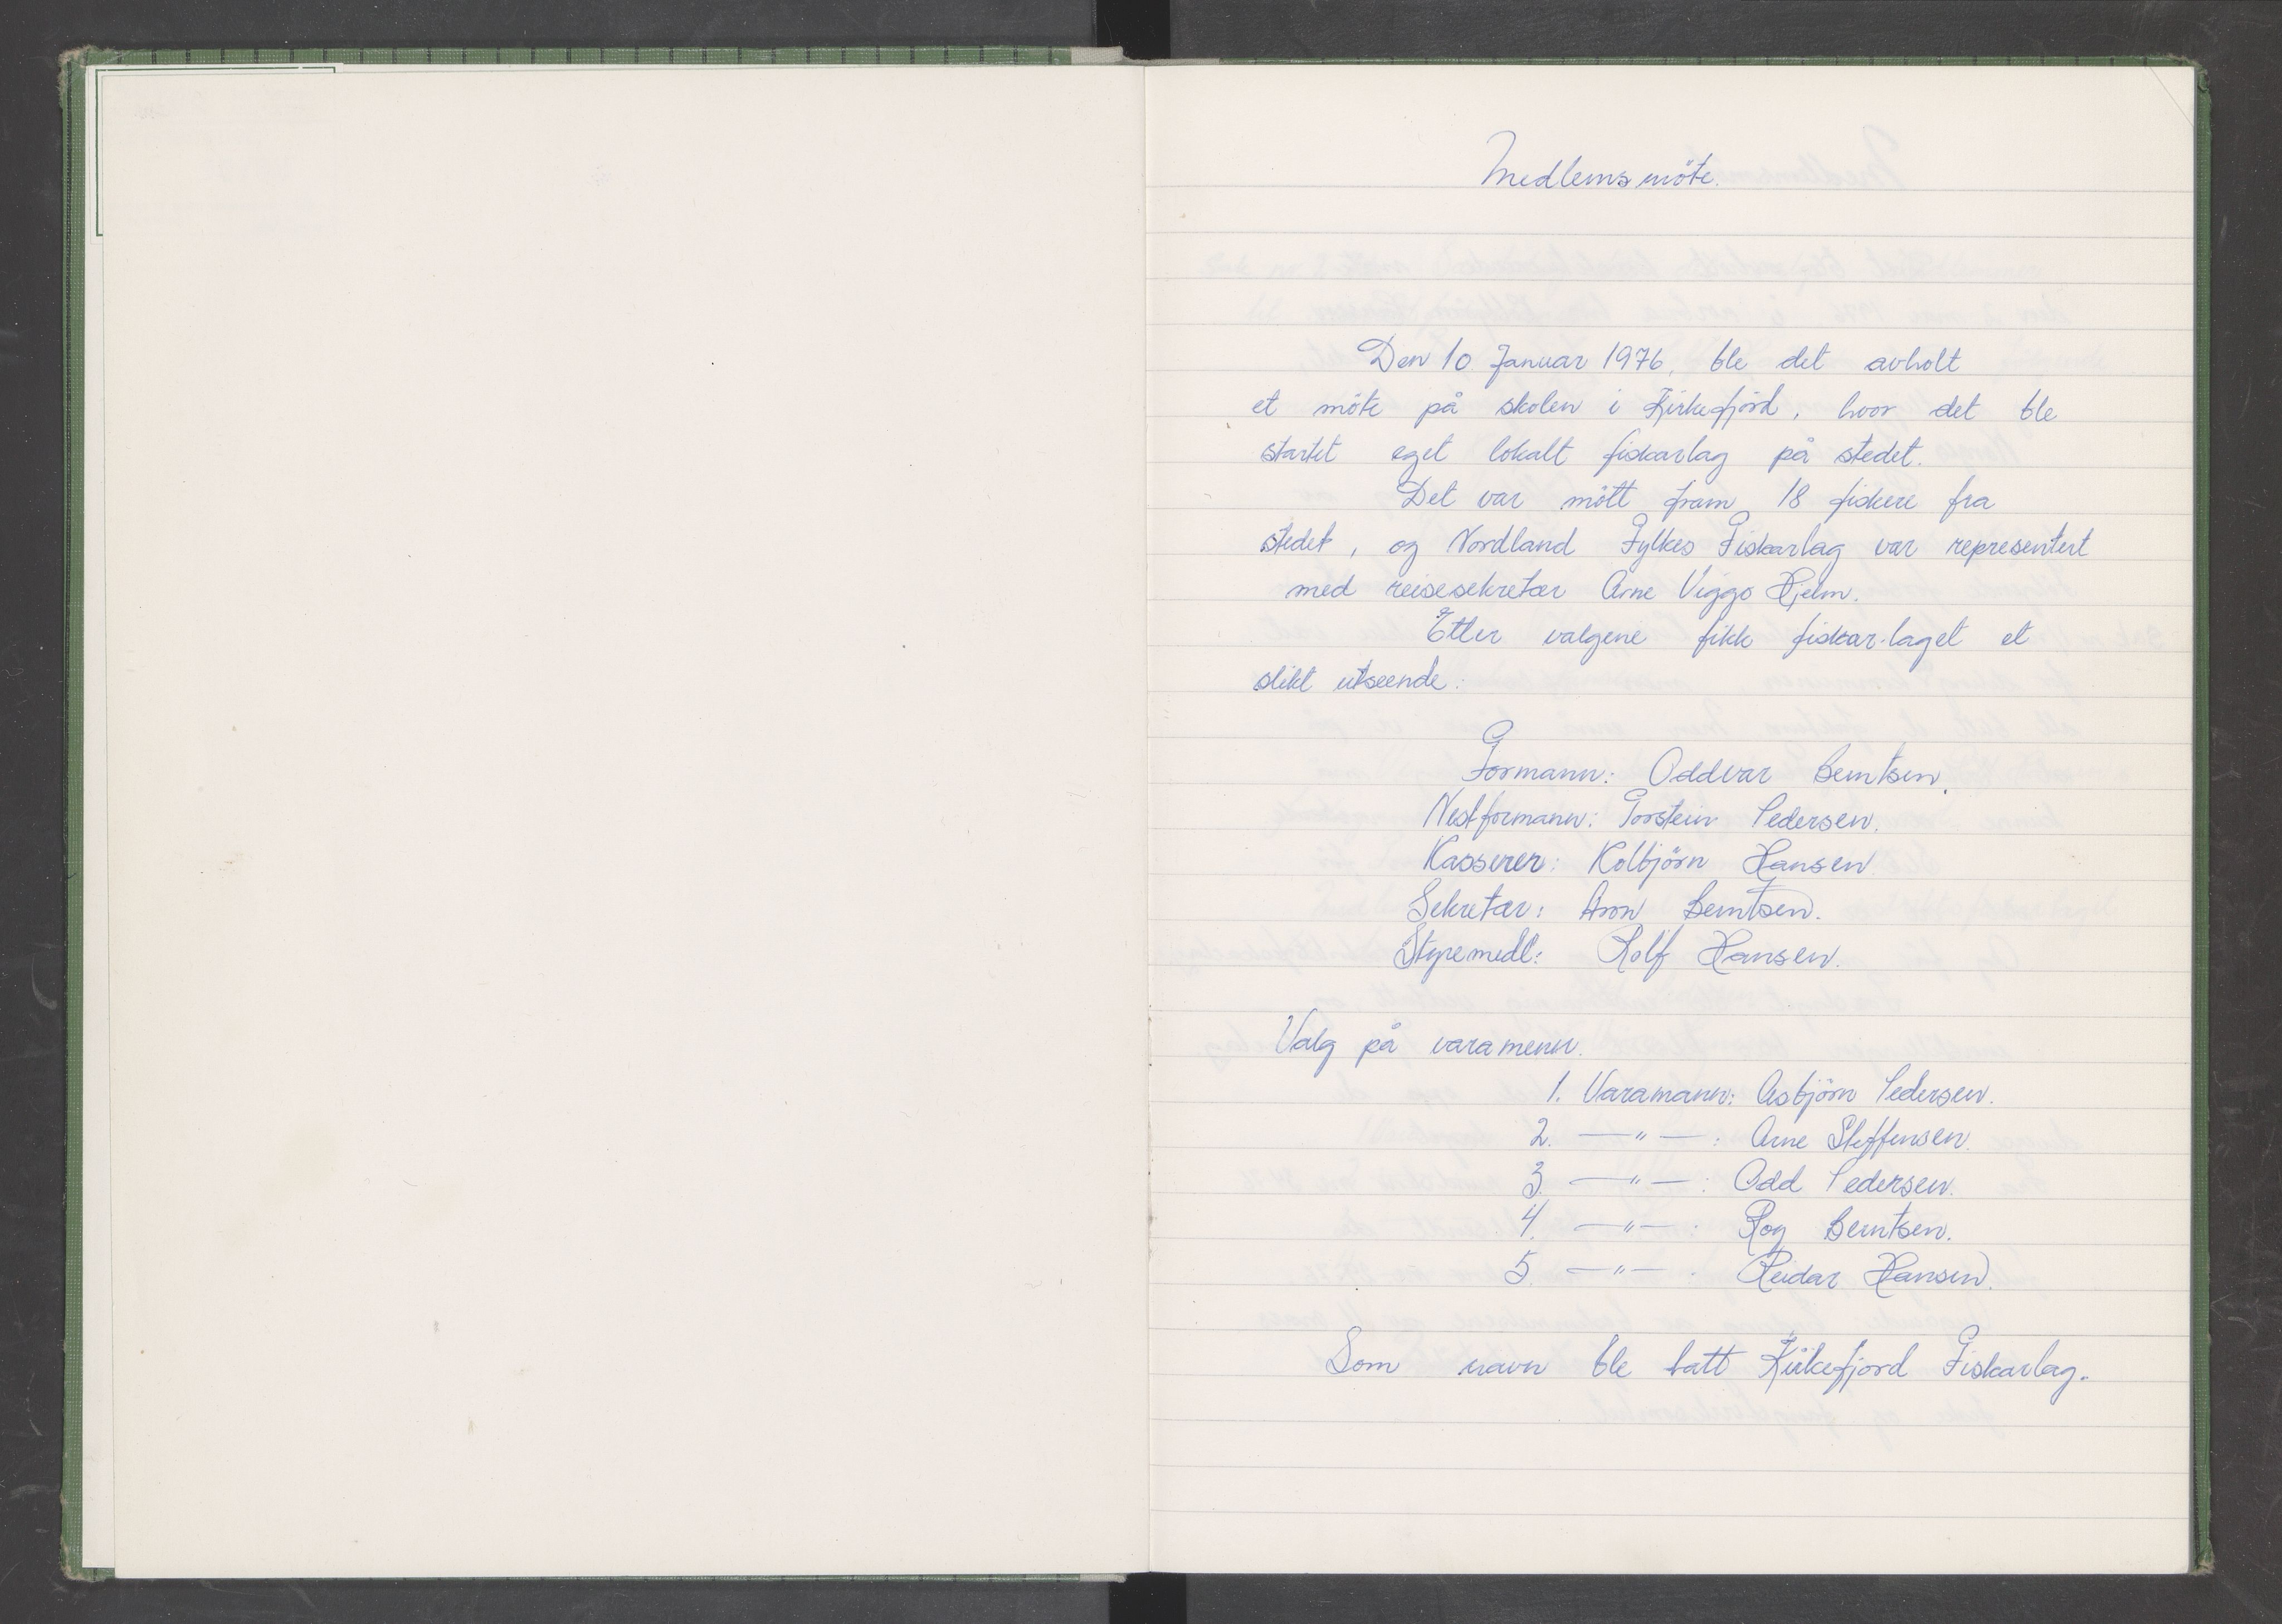 Medlemsmöte.
Den 10 Januar 1976, ble det avholt
et möte på skolen i Kirkefjörd, hvor det ble
startet eget lokalt fiskarlag på stedet.
Det var mött fram 18 fiskere fra
stedet, og Nordland Fylkes Fiskarlag var representert
med reisesekretær Arne Viggo Hjelm.
Etter valgene fikk fiskar-laget et
slikt utseende:
Formann: Oddvar Berntsen.
Nestformann: Torstein Pedersen.
Kasserer: Kolbjörn Hansen
Sekretær: Aron Berntsen.
Styremedl: Rolf Hansen.
Valg på varamenn.
1. Varamann: Asbjörn Pedersen.
2. —"—: Arne Steffensen.
3. —"—: Odd Pedersen.
4. —"—: Roy Berntsen.
5. —"—. Reidar Hansen.
Som navn ble tatt Kirkefjord Fiskarlag.